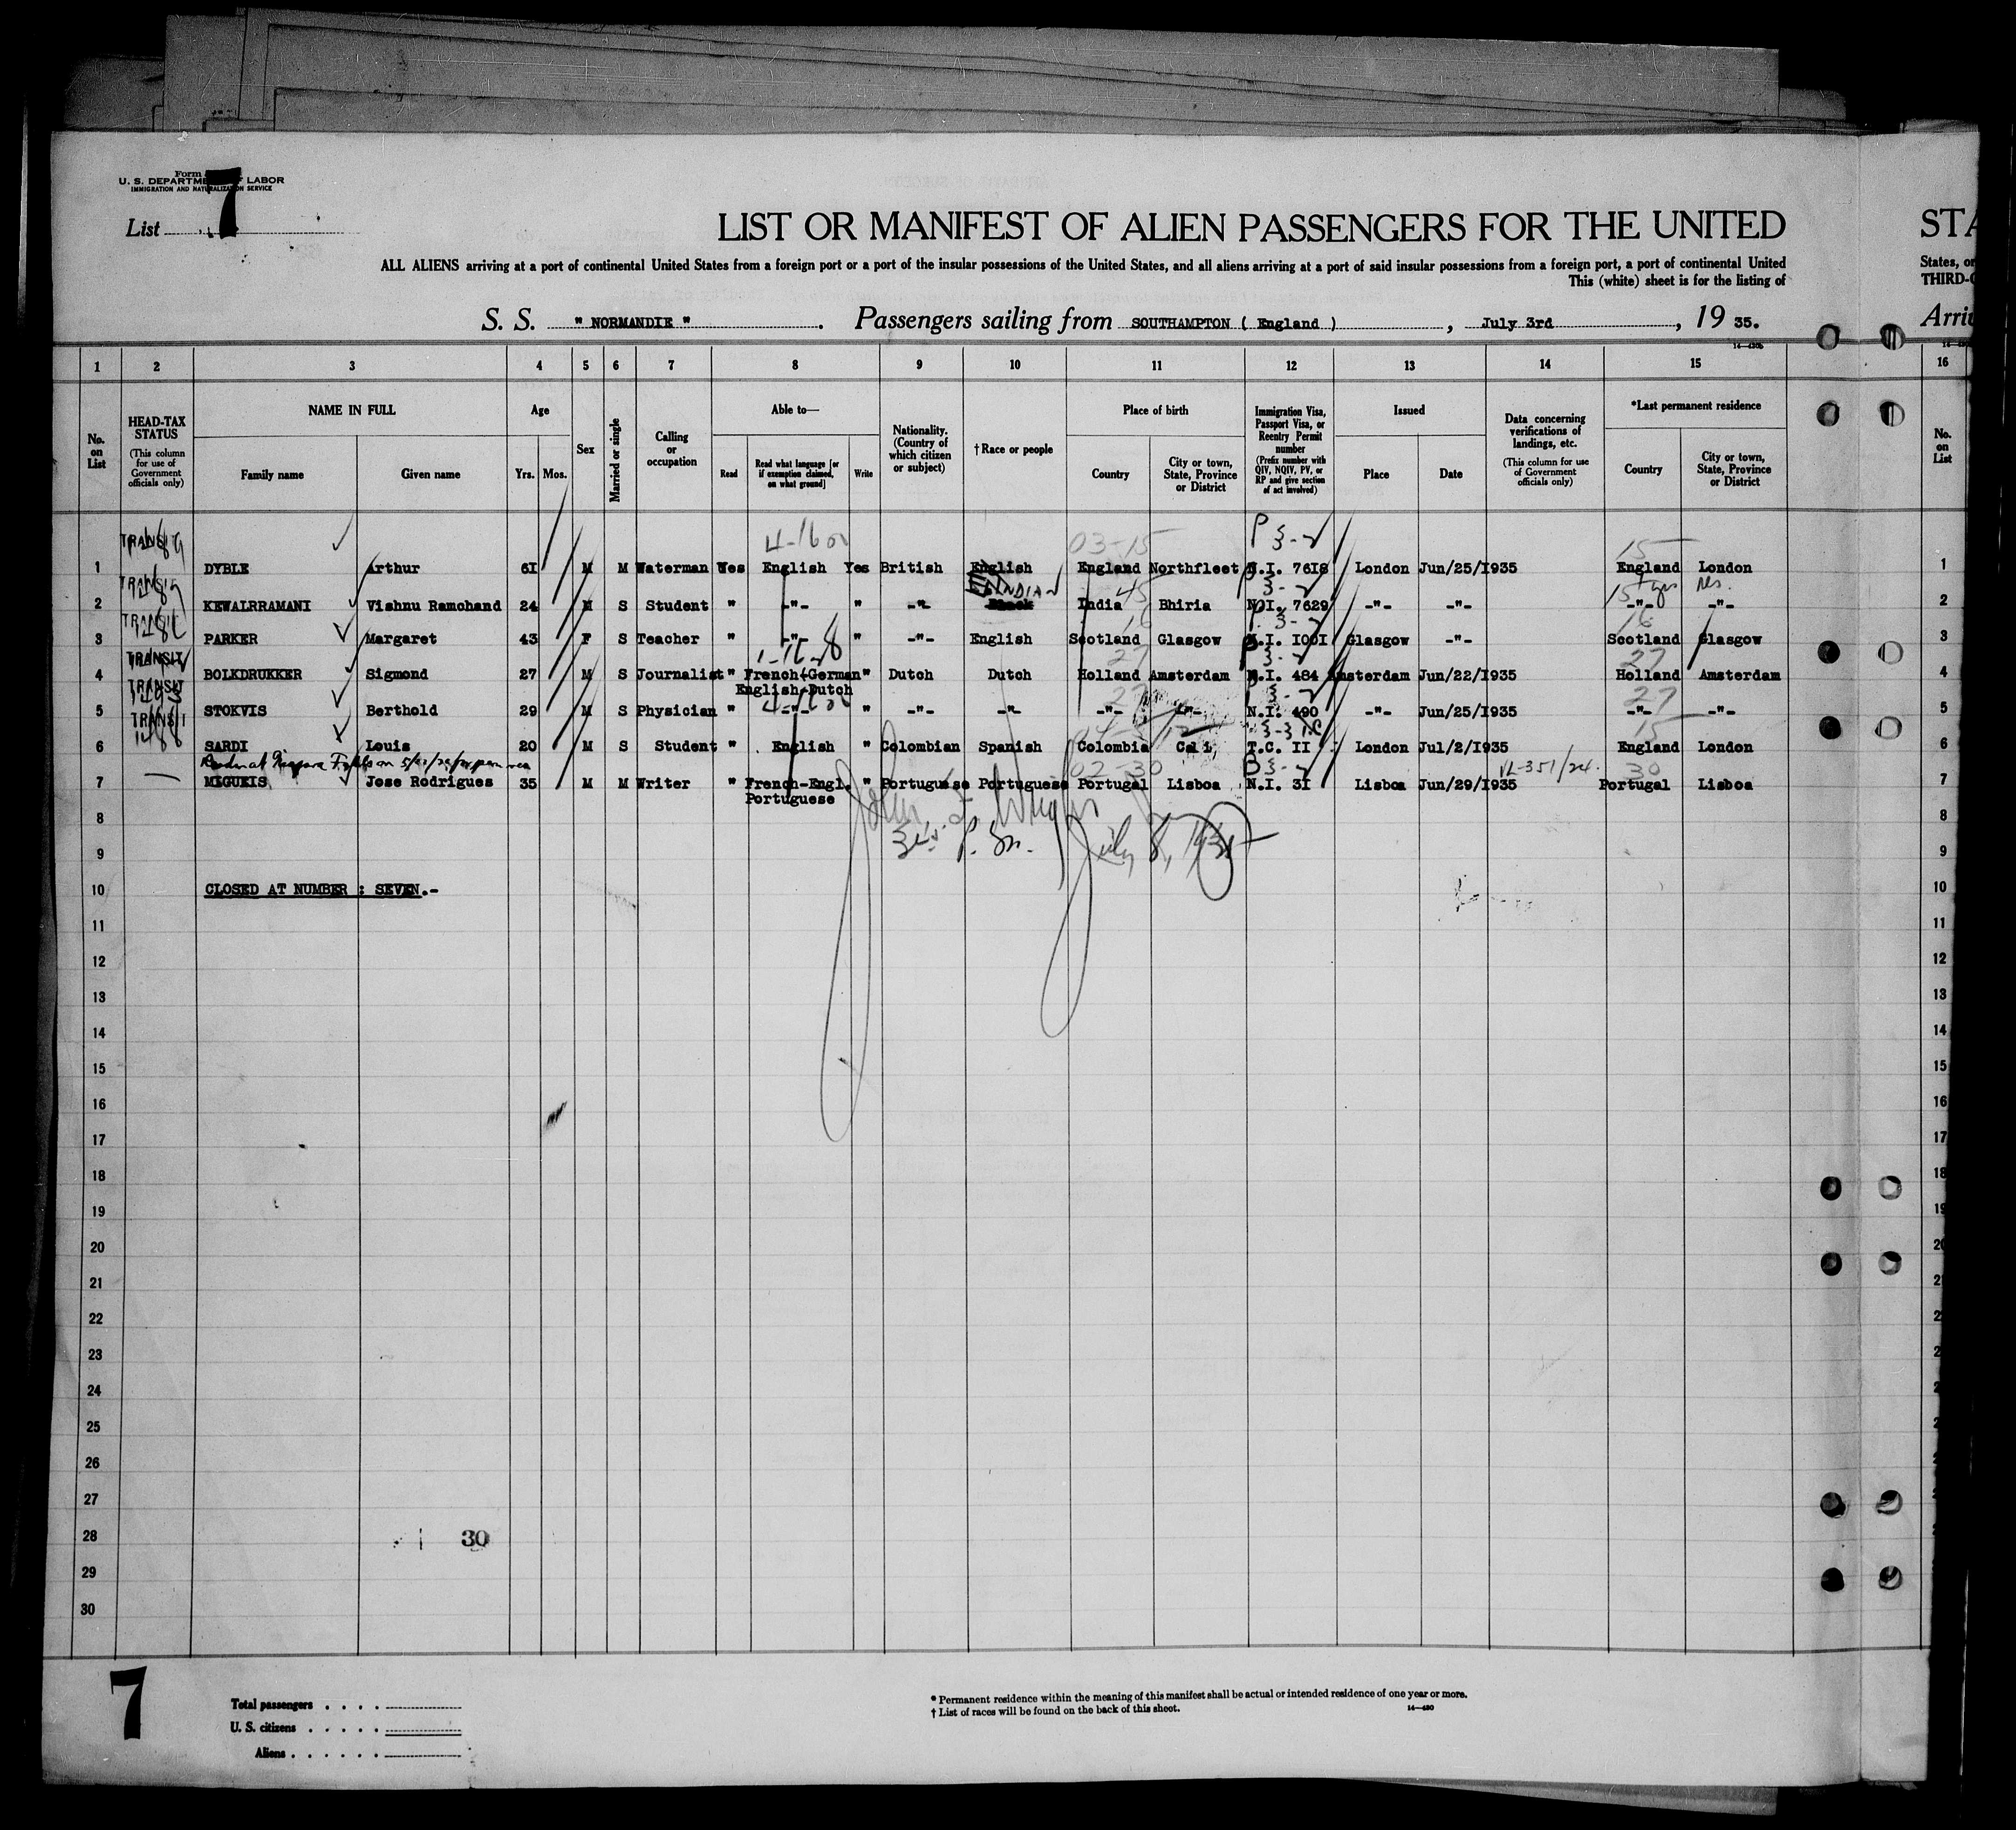 Form
U. S. DEPARTMENT OF LABOR
IMMIGRATION AND NATURALIZATION SERVICE
7
List
LIST OR MANIFEST OF ALIEN PASSENGERS FOR THE UNITED
STA
ALL ALIENS arriving at a port of continental United States from a foreign port or a port of the insular possessions of the United States, and all aliens arriving at a port of said insular possessions from a foreign port, a port of continental United
States, or
This (white) sheet is for the listing of
THIRD-C
S. S. " NORMANDIE ". Passengers sailing from SOUTHAMPTON ( England ), July 3rd, 19 35.
Arriv
1 2 3 4 5 6 7 8 9 10 11 12 13 14 15 16
No. on List
HEAD-TAX STATUS (This column for use of Government officials only)
NAME IN FULL
Family name Given name
Age
Yrs. Mos.
Sex
Married or single
Calling or occupation
Able to—
Read Read what language [or if exemption claimed, on what ground] Write
Nationality. (Country of which citizen or subject)
†Race or people
Place of birth
Country City or town, State, Province or District
Immigration Visa, Passport Visa, or Reentry Permit number (Prefix number with QIV, NQIV, PV, or RP and give section of act involved)
Issued
Place Date
Data concerning verifications of landings, etc. (This column for use of Government officials only)
*Last permanent residence
Country City or town, State, Province or District
No. on List
TRANSIT 03-15 15
1 DYBLE Arthur 61 M M Waterman Yes English Yes British English England Northfleet N.I. 7618 London Jun/25/1935 England London 1
TRANSIT E INDIAN 45 15 res
2 KEWALRRAMANI Vishnu Ramchand 24 M S Student " -"- " -"- Black India Bhiria N.I. 7629 -"- -"- -"- -"- 2
TRANSIT 16 16
3 PARKER Margaret 43 F S Teacher " -"- " -"- English Scotland Glasgow N.I. 1001 Glasgow -"- Scotland Glasgow 3
TRANSIT 27 27
4 BOLKDRUKKER Sigmond 27 M S Journalist " French-German " Dutch Dutch Holland Amsterdam N.I. 484 Amsterdam Jun/22/1935 Holland Amsterdam 4
English-Dutch
TRANSIT 27 27
5 STOKVIS Berthold 29 M S Physician " -"- " -"- -"- -"- -"- N.I. 490 -"- Jun/25/1935 -"- -"- 5
TRANSIT 15
6 SARDI Louis 20 M S Student " English " Colombian Spanish Colombia Cali, T.C. II London Jul/2/1935 England London 6
02-30 30
7 MIGUEIS Jose Rodrigues 35 M M Writer " French-Engl. " Portuguese Portuguese Portugal Lisboa N.I. 31 Lisboa Jun/29/1935 Portugal Lisboa 7
Portuguese
8 8
July 8, 1935
9 9
10 CLOSED AT NUMBER : SEVEN.- 10
11 11
12 12
13 13
14 14
15 15
16 16
17 17
18 18
19 19
20
21
22
23
24
25
26
27
28 30
29
30
7
Total passengers . . . .
U. S. citizens . . . . .
Aliens . . . . . .
* Permanent residence within the meaning of this manifest shall be actual or intended residence of one year or more.
† List of races will be found on the back of this sheet.
14—430